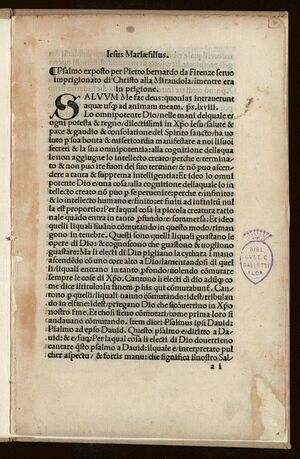 Iesus Mariaefilius.
¶Psalmo exposto per Pietro bernardo da Firenze seruo
imprigionato di Christo alla Mirandola: mentre era
in prigione.
SALVVM Me fac deus: quoniā intrauerunt
aquæ usq; ad animam meam. ps. lxviii.
Lo omnipotente Dio/nelle mani delquale e/
ogni potesta & regno/dilectissimi in Xp̄o Iesu/salute &
pace & gaudio & consolatione del Spirito sancto/ha uo
luto per sua bonta & misericordia manifestare a noi isuoi
secreti & la sua omnipotentia: alla cognitione della qua
le non aggiugne lo intellecto creato/perche e/termina/
to & non puo ire fuori del suo termine/& nō puo ascen
dere a tanta & suprema intelligentia. Et perche lo omni
potente Dio e/una cosa alla cognitione dellaquale lo in
tellecto creato nō puo p̄ se peruenire:perche e/infinito:&
lo intellecto humano e/finito:et finiti ad infinitū nul
la est proportio. Per laqual cosa la picciola creatura ratio
nale quādo entra in tanto p̄fundo/si sommerge: Et ideo
quelli liquali uāno cōmutando in questo modo/riman
gono in tenebre. Questi sono quelli liquali gustano le
opere di Dio:& cognoscono che gustono & ueggiono
& piangano: Ma li electi di Dio pigliano la cythara iman
ascendendo colla mente et core alto a Dio/lamentan
liquali entrano in tanto p̄fondo/uolendo cōmutare
sempre le cose di Xp̄o. Cantono li electi di Dio ad alto
dice il titulo/In finem p̄ his qui cōmutabunt. Canton
p quelli/iquali uanno cōmutando:idest/tribulan
do in eterno:idest/priegano Dio che sicōuertino in Xp̄o
nostro fine. Et chosi sieno cōmutati/come prima loro si
andauano cōmutando. Item dicet: Psalmus ipsi Dauid:
Psalmo ad epso Dauid. Questo psalmo e/diritto a Da/
uid:& e/suo: Per laqual cosa li electi di Dio douerrieno
cantare q̄sto psalmo a Dauid: ilquale e/interpretato pul
cher aspectu/& fortis manu: che significa il nostro Sal
a i
BIBL
GUST. C.
GALLETTI
FLOR.